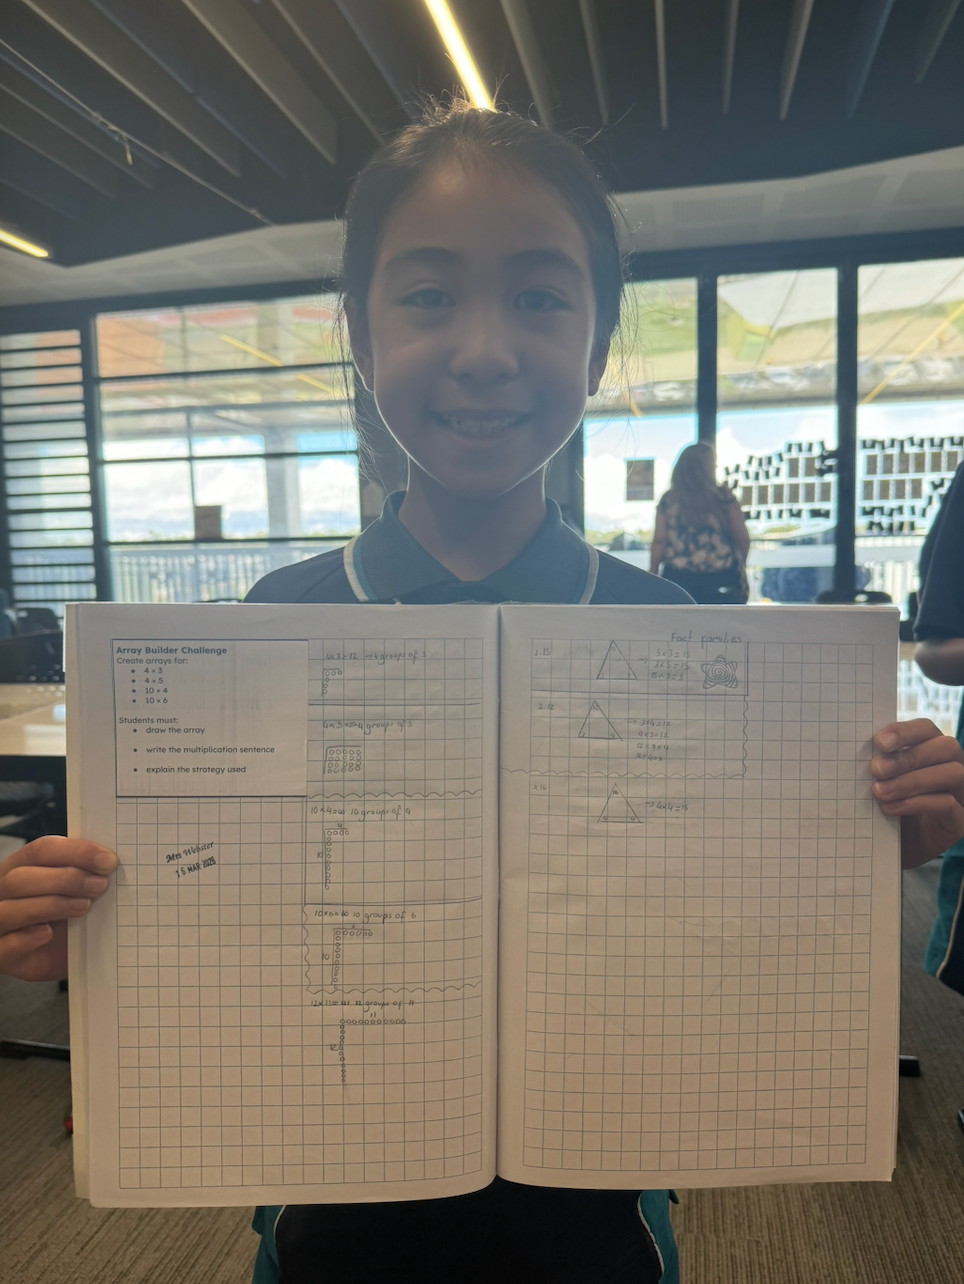 Array Builder Challenge
Create arrays for:
• 4 × 3
• 4 × 5
• 10 × 4
• 10 × 6
Students must:
• draw the array
• write the multiplication sentence
• explain the strategy used
Mrs Webster
4x3=12 → 4 groups of 3
groups of
10x4= 10 groups of 4
4
10
10x6=60 10 groups of 6
10
12x11= 12 groups of 11
11
12
Fact families
1. 15
→ 5x3=15
3x5=15
2. 12
→ 3x4=12
4x3=12
→ 4x4=16